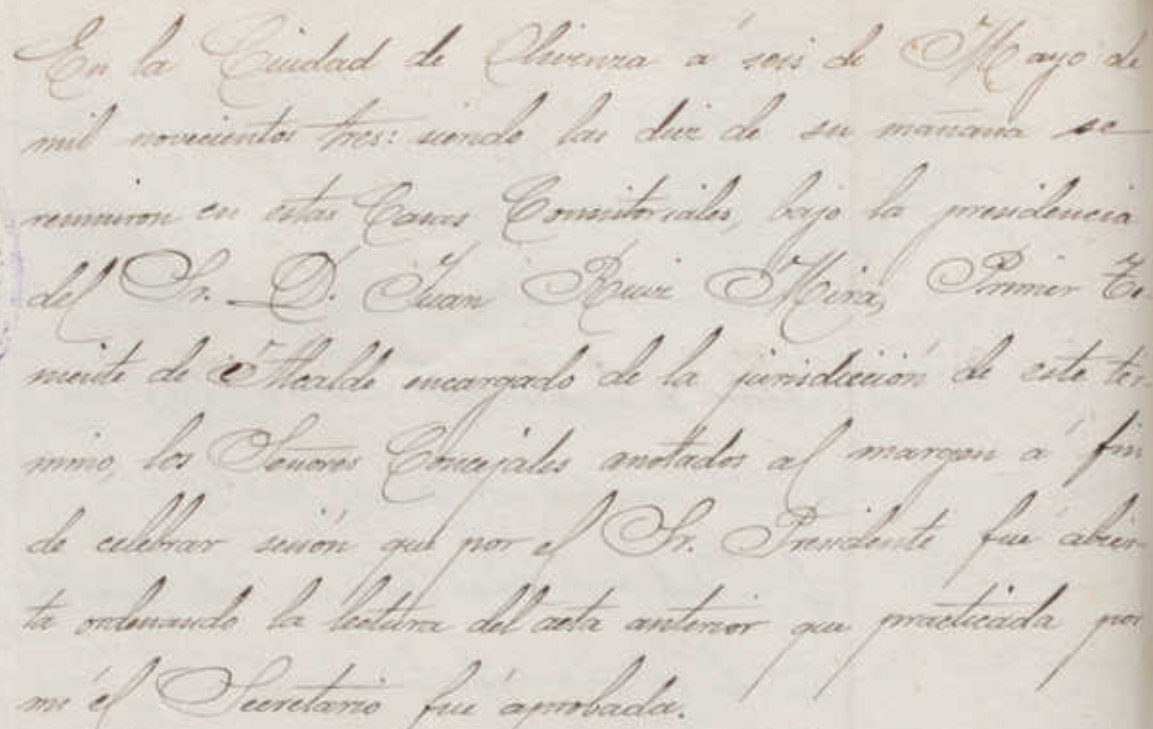 En la Ciudad de Olivenza á seis de Mayo de
mil novecientos tres: siendo las diez de su mañana se
reunieron en estas Casas Consistoriales, bajo la presidencia
del Sr. D. Juan Ruiz Mira, Primer Te
niente de Alcalde encargado de la jurisdicción de este ter-
mino, los Señores Concejales anotados al margen á fin
de celebrar sesión que por el Sr. Presidente fué abier-
ta ordenando la lectura del acta anterior que practicada por
mi el Secretario fué aprobada.